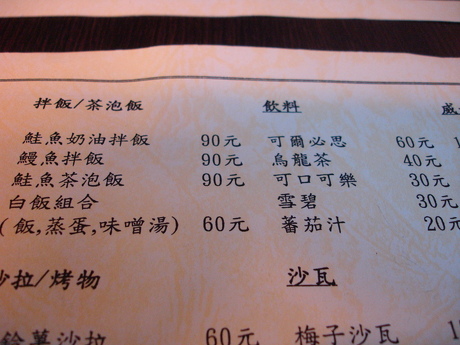 拌飯/茶泡飯
鮭魚奶油拌飯 90元
鰻魚拌飯 90元
鮭魚茶泡飯 90元
白飯組合
(飯,蒸蛋,味噌湯) 60元
沙拉/烤物
薯沙拉 60元
飲料
可爾必思 60元
烏龍茶 40元
可口可樂 30元
雪碧 30元
蕃茄汁 20元
沙瓦
梅子沙瓦